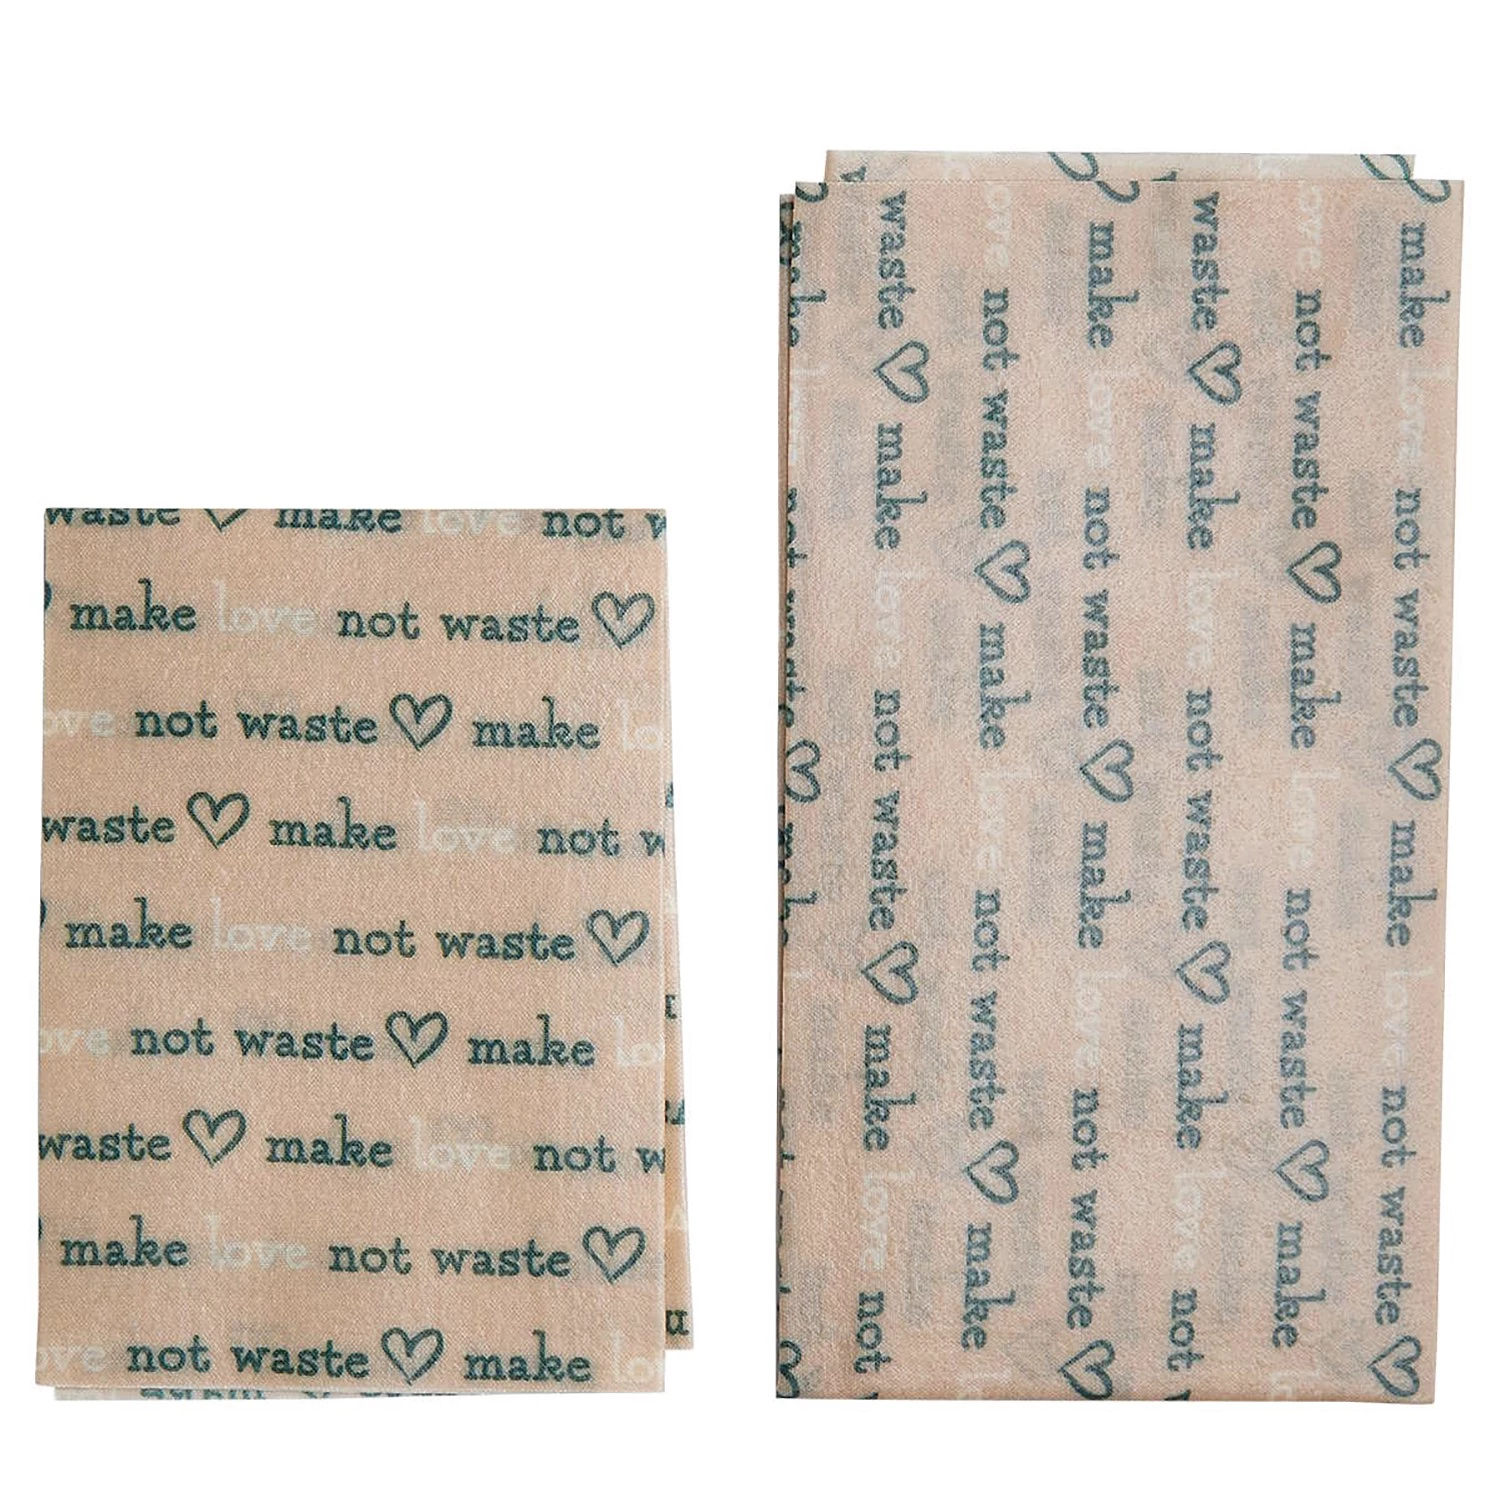 waste ♡ make love not w
make love not waste ♡
ove not waste ♡ make lo
waste ♡ make love not w
make love not waste ♡
ove not waste ♡ make lo
waste ♡ make love not w
make love not waste ♡
ove not waste ♡ make lo
make love not waste ♡ make love not waste ♡
ove not waste ♡ make love not waste ♡ make lo
waste ♡ make love not waste ♡ make love not
make love not waste ♡ make love not waste ♡
ove not waste ♡ make love not waste ♡ make lo
waste ♡ make love not waste ♡ make love not